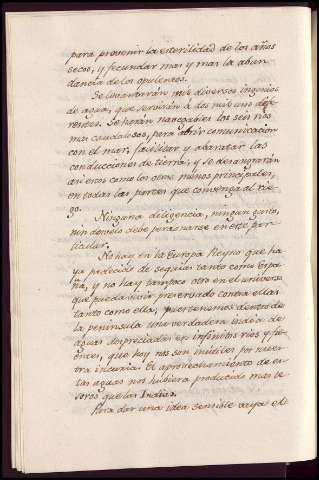 para prevenir la esterilidad de los años
secos, y fecundar mas y mas la abun
dancia de los opulentos.
Se levantarán mil diversos ingenios
de agua, que servirán á dos mil usos dife
rentes. Se harán navegables los seis rios
mas caudalosos, para abrir comunicacion
con el mar, facilitar y abaratar las
conducciones de tierra; y se desangrarán
asi estos como los otros menos principales,
en todas las partes que convenga al rie
go.
Ninguna diligencia, ningun gasto,
ningun desvelo debe perdonarse en este par
ticular.
No hay en la Europa Reyno que ha
ya padecido de sequias tanto como Espa
ña, y no hay tampoco otro en el universo
que pueda estár preservado contra ellas
tanto como ella, pues tenemos dentro de
la peninsula una verdadera India de
aguas depreciadas en infinitos rios y fu
entes, que hoy nos son inutiles por nues
tra incuria. El aprovechamiento de es
tas aguas nos hubiera producido mas te
soros que las Indias.
Para dar una idea sensible